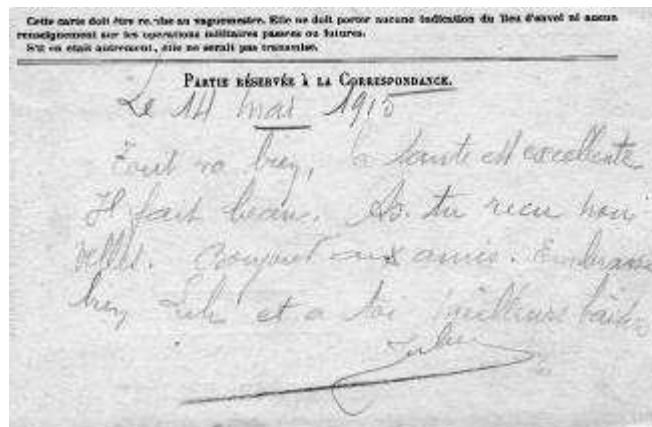 Cette carte doit être remise au vaguemestre. Elle ne doit porter aucune indication du lieu d'envoi ni aucun
renseignement sur les opérations militaires passées ou futures.
S'il en était autrement, elle ne serait pas transmise.
Partie réservée à la Correspondance.
Le 14 mai 1915
Tout va bien, la santé est excellente
Il fait beau. As-tu reçu nou-
velles. Bonjour aux amis. Embrasse
bien et a toi meilleurs